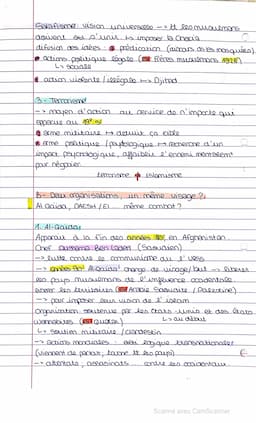 Salafisme: vision universelle → tt les musulmans
doivent s'unir. ↳ imposer la Charia
diffusion des idées: • prédication (
• actions politique légale (Frères musulmans 1928)
↳ sociale
• action violente / illégale ↦ Djihad
3- Terrorisme
→ moyen d'action au service de n'importe qui
apparue au 19e s
• arme militaire ↦ détruire ça cible
• arme politique / psychologique → recherche d'un
impact psychologique, affaiblir l'ennemi mentalement
pour négocier.
terrorisme ≠ islamisme
B- Deux organisations, un même visage?
Al Qaida, DAESH / EI ... même combat?
1. Al-Qaida
Apparue à la fin des années 80, en Afghanistan.
Chef: Oussama Ben Laden (Saoudien)
→ lutte contre le communisme de l'URSS
→ années 90: Al-Qaida change de visage / but → libérer
les pays musulmans de l'influence occidentale
(Arabie Saoudite / Palestine)
→ pour imposer leur vision de l'islam
organisation soutenue par les Etats-Unis et des états
↳ au début
↳ soutien militaire / clandestin
→ actions mondiales: logique transnationale
(viennent de partout, tt les pays)
→ attentats, assassinats ... contre les occidentaux.
Scanné avec CamScanner